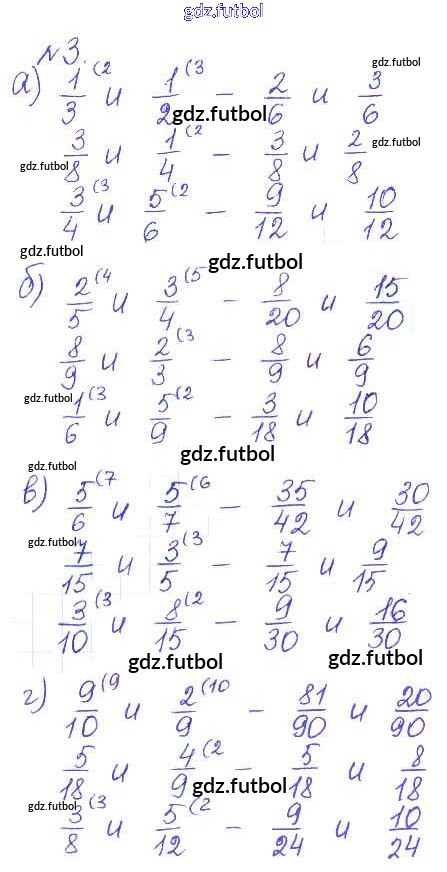 gdz.futbol
№3.
gdz.futbol
а) 1/3 (2 и 1/2 (3 – 2/6 и 3/6
gdz.futbol
gdz.futbol
3/8 и 1/4 (2 – 3/8 и 2/8
gdz.futbol
3/4 (3 и 5/6 (2 – 9/12 и 10/12
gdz.futbol
gdz.futbol
б) 2/5 (4 и 3/4 (5 – 8/20 и 15/20
8/9 и 2/3 (3 – 8/9 и 6/9
gdz.futbol
gdz.futbol
1/6 (3 и 5/9 (2 – 3/18 и 10/18
gdz.futbol
gdz.futbol
в) 5/6 (7 и 5/7 (6 – 35/42 и 30/42
gdz.futbol
gdz.futbol
7/15 и 3/5 (3 – 7/15 и 9/15
3/10 (3 и 8/15 (2 – 9/30 и 16/30
gdz.futbol
gdz.futbol
г) 9/10 (9 и 2/9 (10 – 81/90 и 20/90
5/18 и 4/9 (2 – 5/18 и 8/18
gdz.futbol
gdz.futbol
3/8 (3 и 5/12 (2 – 9/24 и 10/24
gdz.futbol